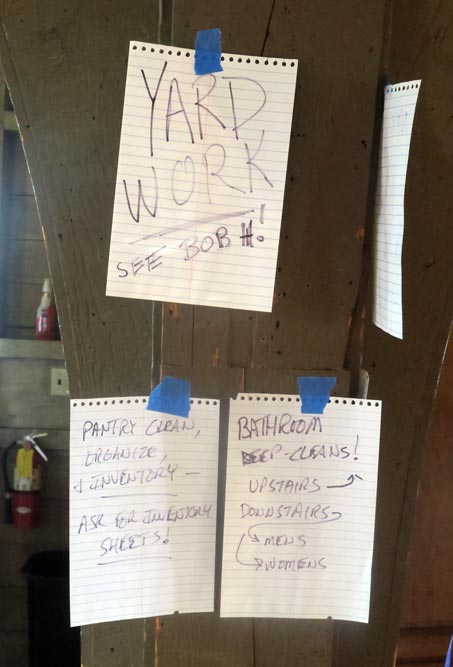 YARD
WORK
SEE BOB H.!
PANTRY CLEAN,
ORGANIZE,
+ INVENTORY —
ASK FOR INVENTORY
SHEETS!
BATHROOM
DEEP-CLEANS!
UPSTAIRS
DOWNSTAIRS
MENS
WOMENS